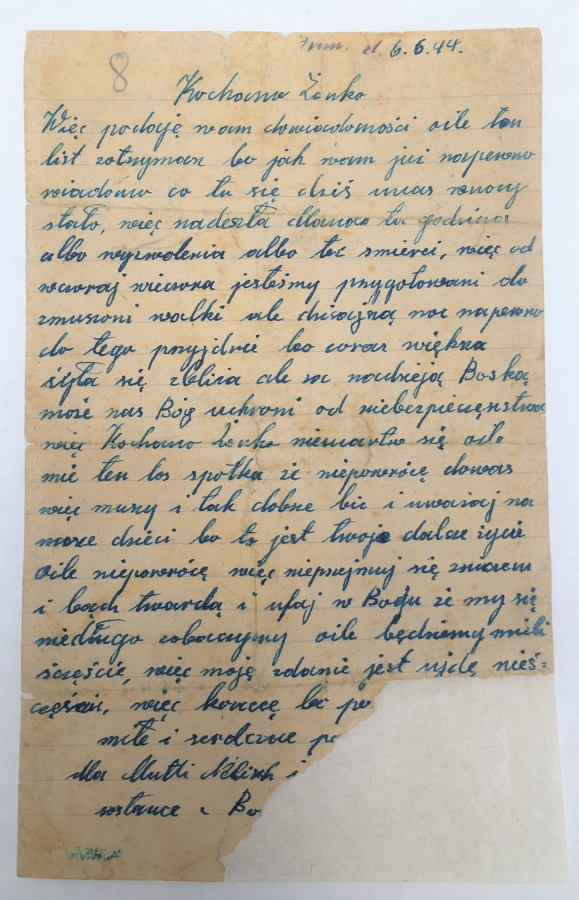 8 Fran. d. 6.6.44.
Kochano Żonko
Więc podaję wam dowiadomości oile ten
list zotrzymasz bo jak wam już naperwno
wiadomo co tu się dziś unas wnocy
stało, więc nadeszła dlanas ta godzina
albo wyzwolenia albo też smierci, więc od
wczoraj wieczora jesteśmy przygotowani do
zmuszoni walki ale dzisiajszą noc naperwno
do tego przyjdzie bo coraz większa
siła się zbliża ale za nadzieją Boską
może nas Bóg uchroni od niebezpieczęnstwa
więc Kochano Żonko niemartw się oile
mie ten los spotka że niepowrócę dowas
więc muszy i tak dobrze bić i uważaj na
nasze dzieci bo to jest twoje dalsze życie
oile niepowrócę więc nieprzejmuj się zniczem
i bądź twardą i ufaj w Bogu że my się
niedługo zobaczymy oile będziemy mieli
szczęście, więc moję zdanie jest ujdę nieś=
częściu, więc kończę bo po
miłe i serdeczne po
dla Mutti i
zostańce z Bo